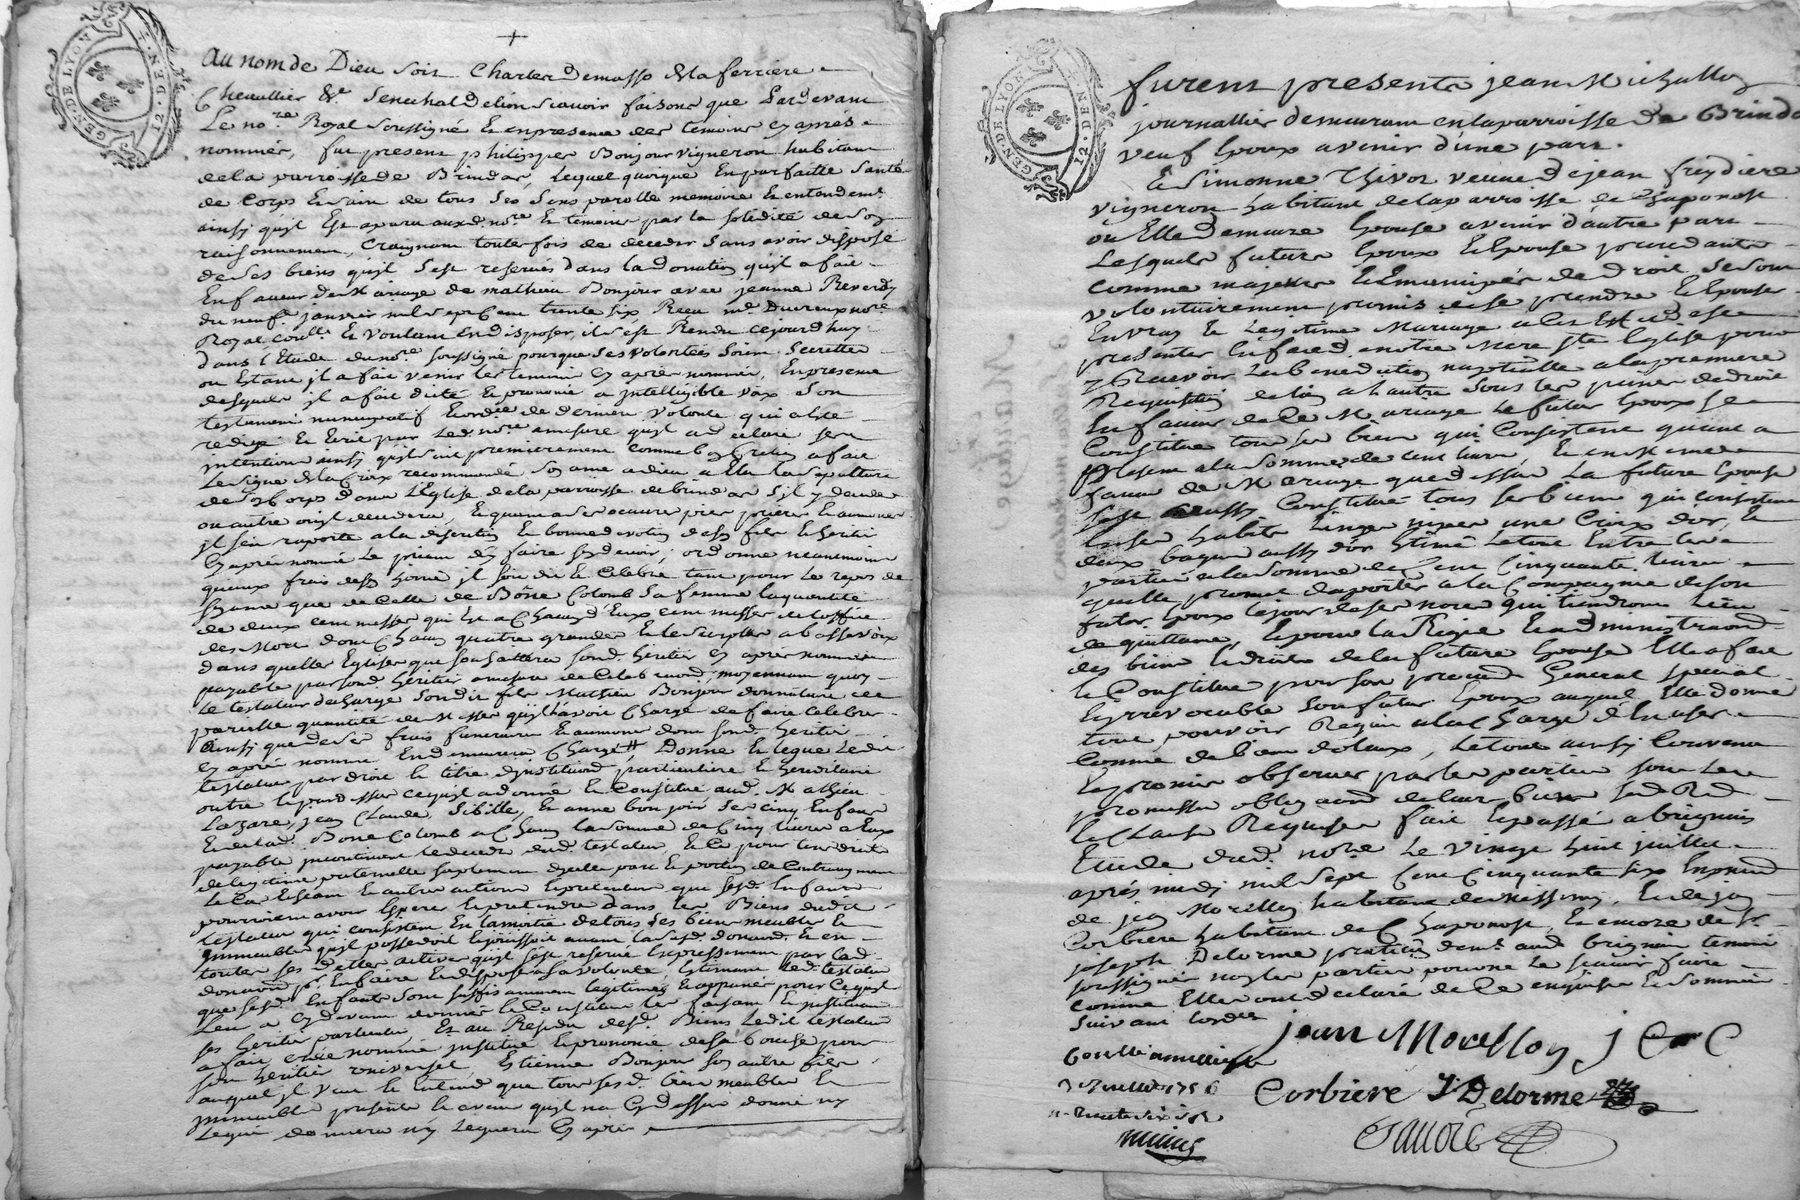 GEN. DE LYON 12. DEN.
Au nom de Dieu soit Charles de la ferriere
Chevallier Senechal de lion scavoir faisons que Pardevant
Le no.re Royal soussigné Et en presence des temoins Cy aprés
nommés, fut present philippes Bonjour vigneron habitant
de la parroisse de Brindas, Lequel quoique En parfaitte Santé
de Corps Et sain de tous Ses Sens parolle memoire Et entendem.t
ainsy qu'jl Est aud. no.re Et temoins par la solidité de son
raisonnement, Craignant toutefois de deceder Sans avoir disposé
de Ses biens qu'jl s'est reservés dans la donation qu'jl a fait
En faveur de Mariage de mathieu Bonjour avec jeanne Reverdy
du neuf.e janvier mil sept Cent trente six Reçu m.e no.re
Royal Et voulant En disposer, il s'est Rendu cejourd'huy
dans l'Etude du no.re soussigné pour que Ses volontés Soient Secrettes
ou Estant jl a fait venir les temoins Cy aprés nommés, En presence
desquels jl a fait dicté Et prononcé a jntelligible voix Son
testament nuncupatif Et de derniere volonté qui a Eté
redigé Et Ecrit par Led. no.re amesure qu'jl a declaré ses
jntentions ainsy qu'jl suit premierement Comme bon Cretien a fait
Le signe de la Croix recommandé Son ame a dieu a Elu la sepulture
de son Corps dans L'Eglise de la parroisse de brindas s'jl y decede
ou autre decedera, Et quant a ses oeuvres pies prieres Et aumones
jl s'en raporte a la discretion Et bonne devotion de son fils Et heritier
Cy aprés nommé Le priant d'en faire son devoir, ordonne neanmoins
qu'aux frais de sond. heritier jl soit dit Et Celebré tant pour Le repos de
Son ame que de Celle de Bone Colomb Sa femme la quantité
de deux cent messes qui Est a Chacun d'Eux cent messes de L'office
des Mort dont Chacun quatre grandes Et Le surplus a basse voix
dans quelles Eglises que souhaittera sond. heritier Cy aprés nommé
payable par sond. heritier amesure de moyennant quoy
Le testateur decharge Sondit fils Mathieu Bonjour donnataire de
pareille quantité de Messes qu'jl l'avoit Chargé de faire Celebrer
Ainsy que de Ses frais funeraires Et aumones dont sond. heritier
Cy aprés nommé En demeurera Chargé, Donne Et Legue Ledit
testateur par droit Et titre d'jnstitution particuliere Et hereditaire
outre Ce qu'jl a donné Et Constitué aud. Mathieu
Lazare, jean Claude, Sibille, Et anne bonjour Ses Cinq Enfants
Et de lad. Bone Colomb a Chacun La somme de Cinq Livres a Eux
payable jncontinent le decés dud. testateur, Et Ce pour leur droit
de legitime paternelle Suplement d'jcelle part Et portion de
Et autres actions Et pretentions que sesd. Enfants
pourroient avoir Esperer Et pretendre dans les Biens dudit
testateur qui Consistent En la moitié de tous Ses biens meubles Et
jmmeubles qu'jl possedoit Et jouissoit avant la susd. donation Et en
toutes Ses dettes actives qu'jl s'est reservé Expressement par lad.
donation p.r En faire Et disposer a Sa volonté, Estimant Led. testateur
que sesd. Enfants Sont suffisamment legitimés Et apanés pour Ce qu'jl
Leur a Cy devant donné Et Constitué Les faisant Et jnstituant
Ses heritiers particuliers, Et au Residu desd. Biens Ledit testateur
a fait creé nommé jnstitué Et prononcé de sa bouche pour
son heritier universel, Estienne Bonjour son autre fils
auquel jl veut Et Entend que tous sesd. biens meubles Et
jmmeubles presents Et avenir qu'jl n'a Cy dessus donné ny
Legué donnera ny Leguera Cy aprés
GEN. DE LYON 12. DEN.
furent presents jean Michallon
journallier demeurant en la parroisse de Brindas
veuf Epoux avenir d'une part
Et Simonne Thivot veuve de jean freydiere
vigneron habitant de la parroisse de Chaponost
où Elle demeure Epouse avenir d'autre part
Lesquels futurs Epoux Et Epouse procedants
Comme majeurs Et Emancipés de droit, Se sont
volontairement promis de se prendre Et Epouser
En vray Et Legitime Mariage a Cet Effet de se
presenter En face de notre Mere S.te Eglise pour
y Recevoir La benediction nuptialle a la premiere
Requisition de l'un a l'autre sous les peines de droit
En faveur de Ce Mariage Le futur Epoux Se
Constitue tous ses biens qui Consistent quant a
present a la Somme de Cent livres, Et En Meme
faveur de Mariage que dessus La future Epouse
S'est aussy Constitué tous ses biens qui Consistent
En ses habits Linges nipes une Croix d'or, Et
deux bagues aussy d'or Estimé Le tout Entre les
parties a la somme de Cent Cinquante Livres
qu'elle promet d'aporter a la Compagnie de son
futur Epoux le jour de leur noce qui tiendront Lieu
de quittance, Et pour la Regie Et administration
des biens Et droits de la future Epouse Elle a fait
Et Constitué pour son procureur General Special
Et jrrevocable Son futur Epoux auquel Elle donne
tout pouvoir Requis a la Charge d'En user
Comme de biens dotaux, Le tout ainsy Convenu
Et promis observer par les parties sous Les
promesses obligations de leurs biens
Et Clauses Requises fait Et passé a brignais
Etude dud. no.re Le vingt huit juillet
aprés midy mil Sept Cent Cinquante six En presence
de jean Morellon habitant de Messimy, Et de jean
Corbiere habitant de Chaponost, Et encore de s.r
joseph Delorme praticien dem.t aud. brignais temoins
soussignés non les parties pour ne Le scavoir faire
Comme Elles ont declaré de Ce enquises Et Sommées
suivant Lordce
jean Morellon J C C
Controllé
juillet 1756
Corbiere J Delorme